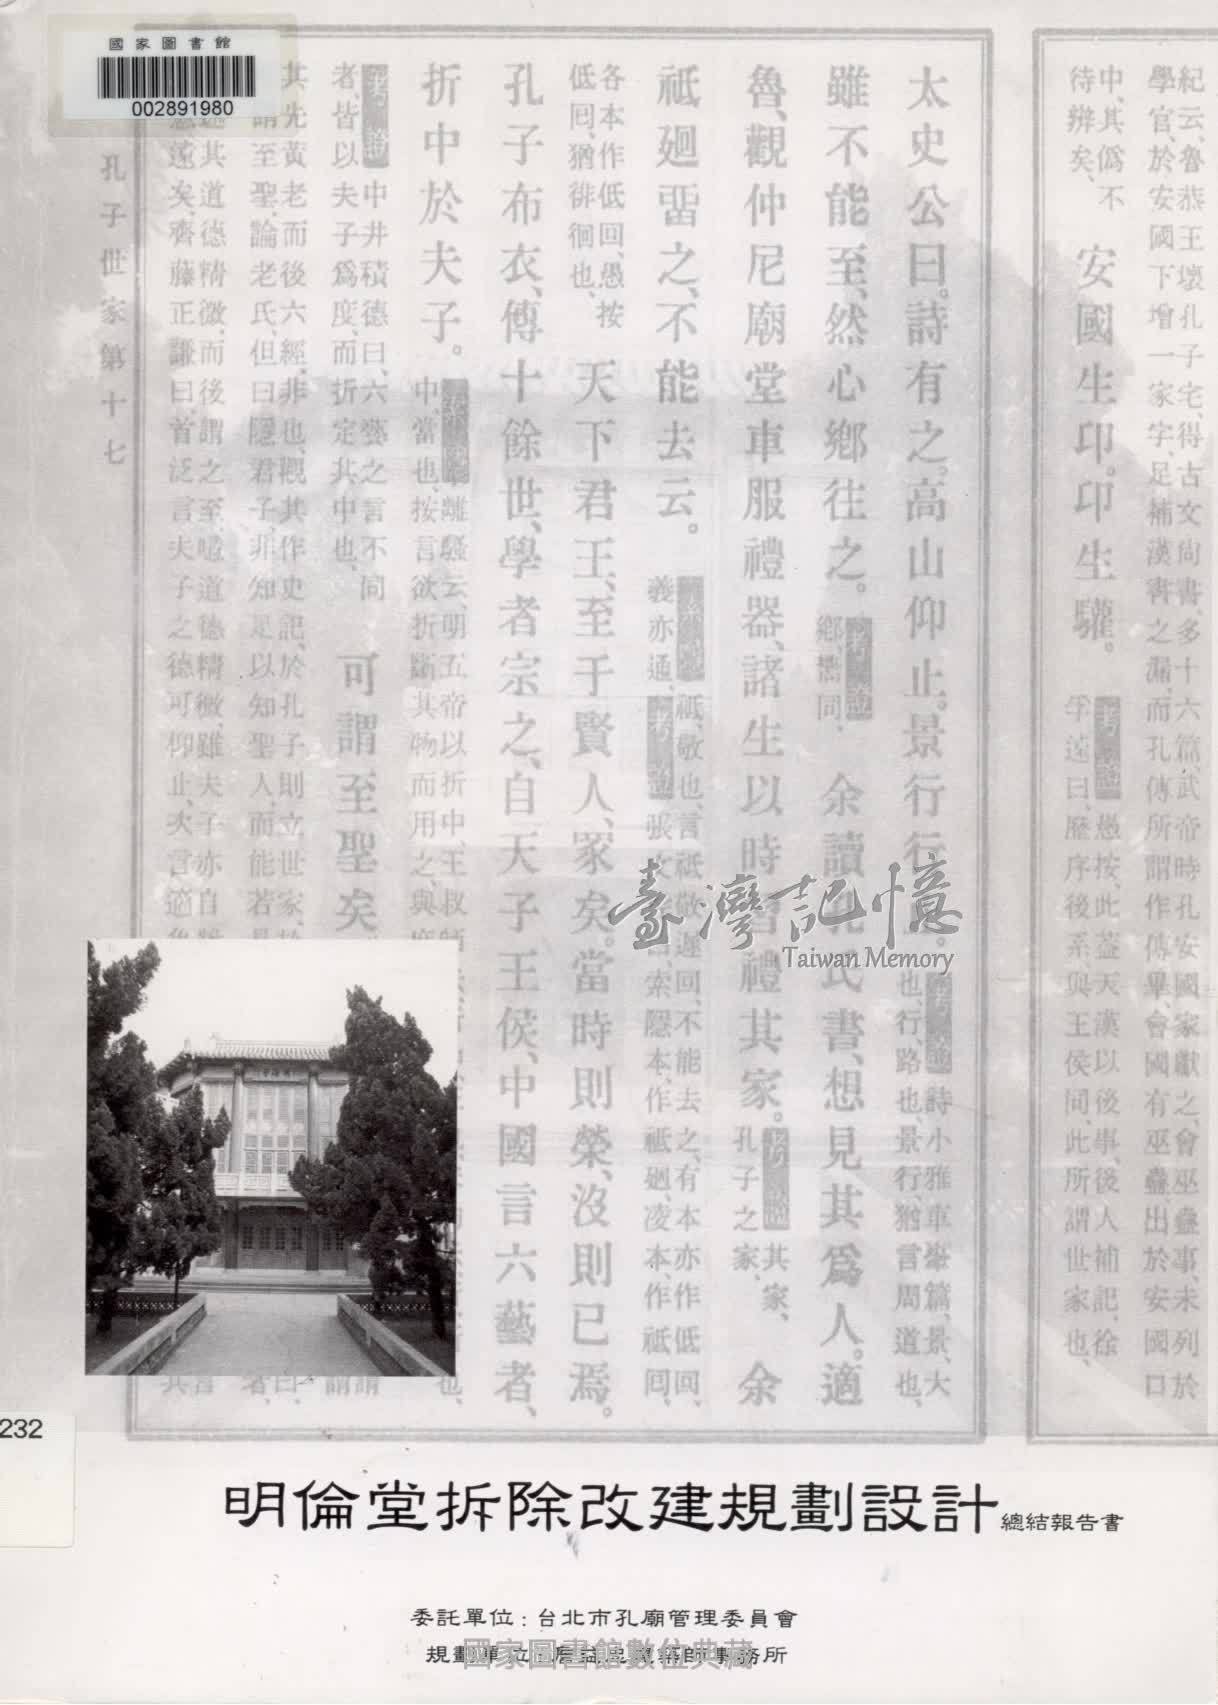 國家圖書館
002891980
紀云、魯恭王壞孔子宅、得古文尙書多十六篇、武帝時孔安國家獻之、會巫蠱事、未列於
學官、於安國下增一家字、足補漢書之漏、而孔傳所謂作傳畢、會國有巫蠱出於安國口
中、其僞不
待辨矣、
安國生卬。卬生驩。
考證 愚按、此蓋天漢以後事、後人補記、徐
孚遠曰、歷序後系與王侯同、此所謂世家也、
太史公曰。詩有之。高山仰止。景行行
考證 詩小雅車舝篇、景、大
也、行、路也、景行、猶言周道也、
雖不能至、然心鄉往之。
考證
鄉、嚮同、
余讀孔氏書、想見其爲人。適
魯、觀仲尼廟堂車服禮器、諸生以時習禮其家。
考證 其家、
孔子之家、
余
祗廻畱之、不能去云。
祗、敬也、言祗敬遲回、不能去之、有本亦作低回、
義亦通、考證 張 索隱本、作祗廻、凌本、作祗囘、
各本作低回、愚按
低囘、猶徘徊也、
天下君王、至于賢人、衆矣。當時則榮、沒則已焉。
孔子布衣、傳十餘世、學者宗之、自天子王侯、中國言六藝者、
折中於夫子。
離騷云、明五帝以折中、王叔
中、當也、按言欲折斷其物而用之、與
考證 中井積德曰、六藝之言不同
者、皆以夫子爲度、而折定其中也、
可謂至聖矣
其先黃老而後六經、非也、觀其作史記、於孔子則立世家、
謂至聖、論老氏、但曰隱君子、非知足以知聖人、而能若
其道德精微、而後謂之至 道德精微、雖夫子亦自
遠矣、齊藤正謙曰、首泛言夫子之德可仰止、次言適
孔子世家第十七
臺灣記憶
Taiwan Memory
232
明倫堂拆除改建規劃設計總結報告書
委託單位：台北市孔廟管理委員會
規劃單位 建築師事務所
國家圖書館數位典藏